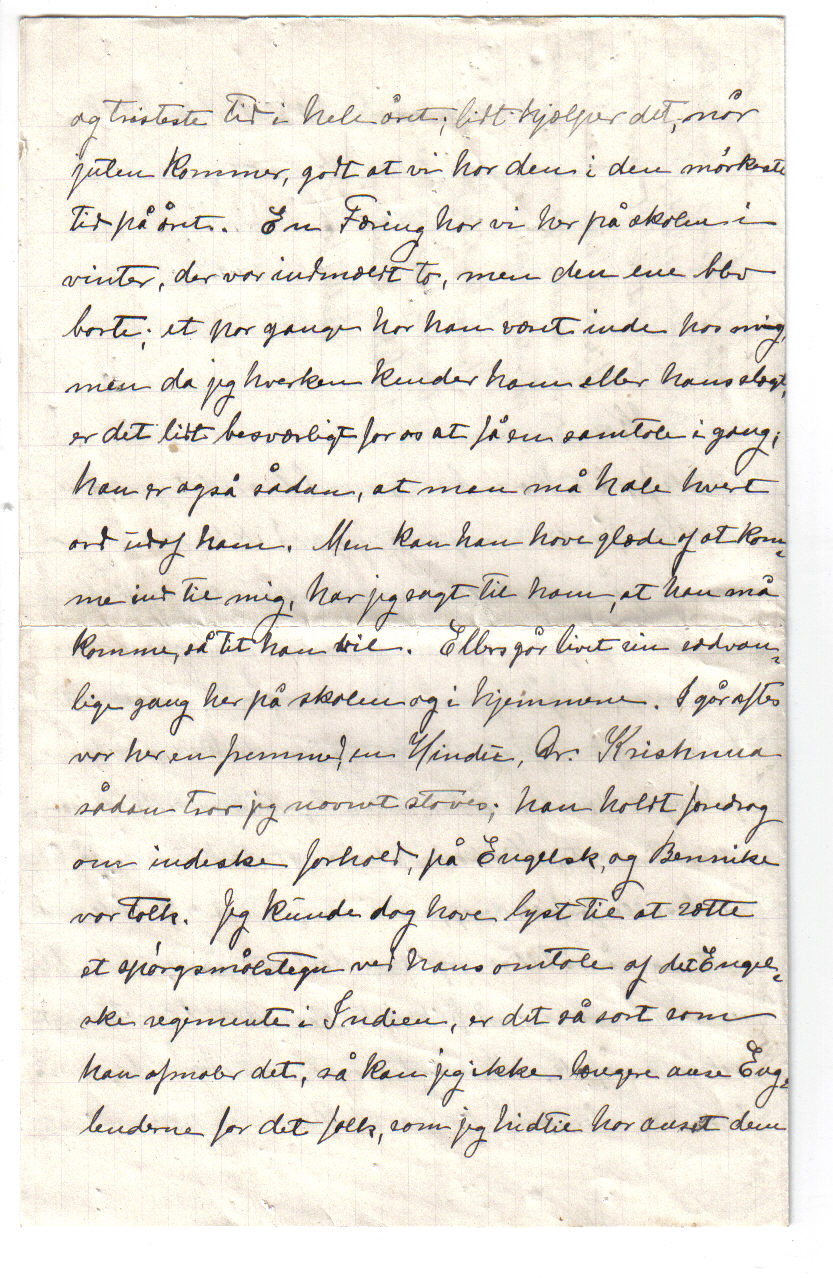 og tristeste tid i hele året; lidt hjælper det, når
julen kommer, godt at vi har den i den mørkeste
tid på året. En Færing har vi her på skolen i
vinter, der var indmeldt to, men den ene blev
borte; et par gange har han været inde hos mig,
men da jeg hverken kender ham eller hans slægt,
er det lidt besværligt for os at få en samtale i gang;
han er også sådan, at man må hale hvert
ord ud af ham. Men kan han have glæde af at kom-
me ind til mig, har jeg sagt til ham, at han må
komme, så tit han vil. Ellers går livet sin sædvan-
lige gang her på skolen og i hjemmene. I går aftes
var her en fremmed, en Hindu, Dr. Krishnua
sådan tror jeg navnet staves; han holdt foredrag
om indiske forhold, på Engelsk, og Bennike
var tolk. Jeg kunde dog have lyst til at sætte
et spørgsmålstegn ved hans omtale af det Engel-
ske regimente i Indien, er det så sort som
han afmaler det, så kan jeg ikke længere anse Eng-
lenderne for det folk, som jeg hidtil har anset dem